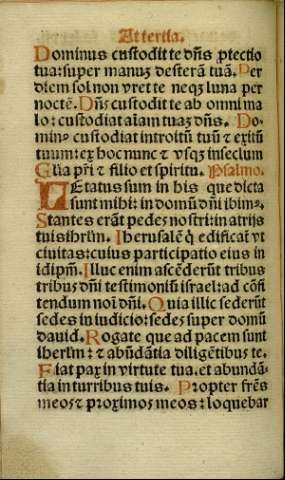 At tertia.
Dominus custodit te dñs ꝓtectio
tua: super manuʒ desterā tuā. Per
diem sol non vret te neqʒ luna per
noctē. Dñs custodit te ab omni ma
lo: custodiat aīam tuaʒ dñs. Do-
min⁹ custodiat introitū tuū ⁊ exitū
tuum: ex hoc nunc ⁊ vsqʒ in seclum
Glīa pr̄i ⁊ filio et spiritu. Psalmo.
LEtatus sum in his que dicta
sunt mihi: in domū dñi ibim⁹.
Stantes erāt pedes nostri: in atrijs
tuis ihrl̄m. Iherusalē q̄ edificat̄ vt
ciuitas: cuius participatio eius in
idip̄m. Illuc enim ascēderūt tribus
tribus dñi testimoniū israel: ad cōfi
tendum noī dñi. Quia illic sederūt
sedes in iudicio: sedes super domū
dauid. Rogate que ad pacem sunt
iherl̄m: ⁊ abūdātia diligētibus te.
Fiat pax in virtute tua. et abundā-
tia in turribus tuis. Propter fr̄es
meos ⁊ proximos meos: loquebar